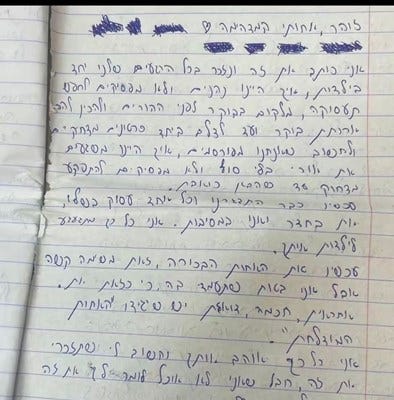 זוהר, אחותי המדהימה ♡
אני כותב את זה ונזכר בכל הרגעים שלנו יחד
בילדות, איך היינו נהנים ולא מפסיקים לחפש
תעסוקה, מלקום בבוקר לפני ההורים ולהכין להם
ארוחת בוקר ועד לצלם ביחד סרטונים מצחיקים
ולחשוב שאנחנו מפורסמים, איך היינו משגעים
את אורי בלי סוף ולא מפסיקים להתפקע
מצחוק עד שהבטן כואבת.
עכשיו כבר התבגרנו וכל אחד עסוק בשלו,
את בחדר ואני במסיבות. אני כל כך מתגעגע
לילדות איתך.
עכשיו את האחות הבכורה, זאת משימה קשה
אבל אני בטוח שתעמדי בה, כי כזאת את.
אחראית, חכמה, דואגת יש שיגידו "האחות
המושלמת".
אני כל כך אוהב אותך וחשוב לי שתזכרי
את זה, חבל שאני לא אוכל לומר לך את זה